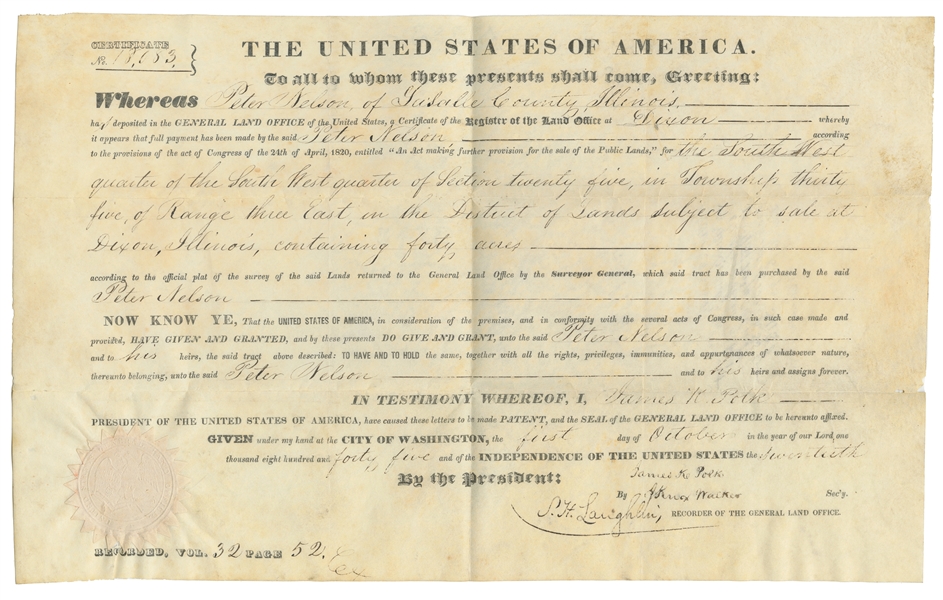 CERTIFICATE
THE UNITED STATES OF AMERICA.
No. 18,083.
To all to whom these presents shall come, Greeting:
Whereas Peter Nelson, of LaSalle County, Illinois,
ha deposited in the GENERAL LAND OFFICE of the United States, a Certificate of the Register of the Land Office at Dixon whereby
it appears that full payment has been made by the said Peter Nelson according
to the provisions of the act of Congress of the 24th of April, 1820, entitled "An Act making further provision for the sale of the Public Lands," for the South West
quarter of the South West quarter of Section twenty five, in Township thirty
five, of Range three East, in the District of Lands subject to sale at
Dixon, Illinois, containing forty acres
according to the official plat of the survey of the said Lands returned to the General Land Office by the Surveyor General, which said tract has been purchased by the said
Peter Nelson
NOW KNOW YE, That the UNITED STATES OF AMERICA, in consideration of the premises, and in conformity with the several acts of Congress, in such case made and
provided, HAVE GIVEN AND GRANTED, and by these presents DO GIVE AND GRANT, unto the said Peter Nelson
and to his heirs, the said tract above described: TO HAVE AND TO HOLD the same, together with all the rights, privileges, immunities, and appurtenances of whatsoever nature,
thereunto belonging, unto the said Peter Nelson and to his heirs and assigns forever.
IN TESTIMONY WHEREOF, I, James K. Polk
PRESIDENT OF THE UNITED STATES OF AMERICA, have caused these letters to be made PATENT, and the SEAL of the GENERAL LAND OFFICE to be hereunto affixed.
GIVEN under my hand at the CITY OF WASHINGTON, the first day of October in the year of our Lord, one
thousand eight hundred and forty five and of the INDEPENDENCE OF THE UNITED STATES the Seventieth
By the President: James K. Polk
By J Knox Walker Sec'y.
S. H. Laughlin, RECORDER OF THE GENERAL LAND OFFICE.
RECORDED, VOL. 32 PAGE 52.